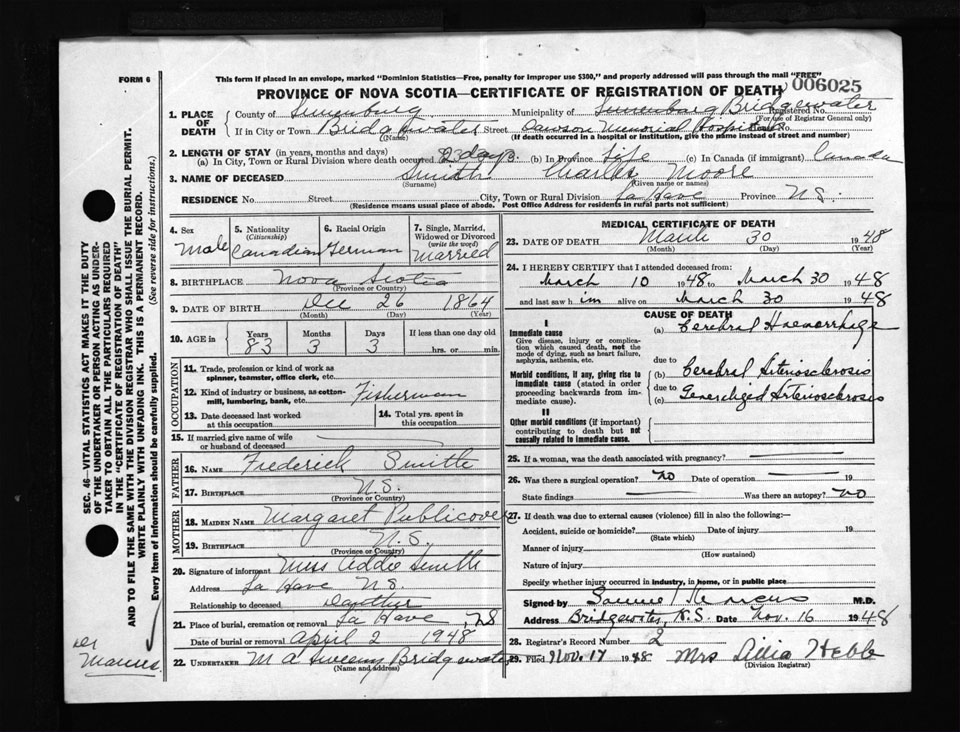 FORM 6
This form if placed in an envelope, marked "Dominion Statistics—Free, penalty for improper use $300," and properly addressed will pass through the mail "FREE"
PROVINCE OF NOVA SCOTIA—CERTIFICATE OF REGISTRATION OF DEATH
006025
Registered No.
(For use of Registrar General only)
1. PLACE OF DEATH
County of Lunenburg Municipality of Lunenburg Bridgewater
If in City or Town Bridgewater Street Dawson Memorial Hospital No.
(Name) (If death occurred in a hospital or institution, give the name instead of street and number)
2. LENGTH OF STAY (in years, months and days)
(a) In City, Town or Rural Division where death occurred 23 days (b) In Province Life (c) In Canada (if immigrant) Canada
3. NAME OF DECEASED Smith Charles Moore
(Surname) (Given name or names)
RESIDENCE No. Street City, Town or Rural Division La Have Province N.S.
(Residence means usual place of abode. Post Office Address for residents in rural parts not sufficient)
4. Sex Male
5. Nationality (Citizenship) Canadian
6. Racial Origin German
7. Single, Married, Widowed or Divorced (write the word) Married
8. BIRTHPLACE Nova Scotia
(Province or Country)
9. DATE OF BIRTH Dec 26 1864
(Month) (Day) (Year)
10. AGE in Years 83 Months 3 Days 3 If less than one day old hrs. or min.
OCCUPATION
11. Trade, profession or kind of work as spinner, teamster, office clerk, etc.
12. Kind of industry or business, as cotton-mill, lumbering, bank, etc. Fisherman
13. Date deceased last worked at this occupation
14. Total yrs. spent in this occupation
15. If married give name of wife or husband of deceased
FATHER
16. NAME Frederick Smith
17. BIRTHPLACE N.S.
(Province or Country)
MOTHER
18. MAIDEN NAME Margaret Publicover
19. BIRTHPLACE N.S.
(Province or Country)
20. Signature of informant Miss Addie Smith
Address La Have N.S.
Relationship to deceased Daughter
21. Place of burial, cremation or removal La Have, N.S.
Date of burial or removal April 2 1948
22. UNDERTAKER M A Sweeny Bridgewater
(Name and address)
MEDICAL CERTIFICATE OF DEATH
23. DATE OF DEATH March 30 1948
(Month) (Day) (Year)
24. I HEREBY CERTIFY that I attended deceased from:
March 10 1948 to March 30 1948
and last saw him alive on March 30 1948
CAUSE OF DEATH
I
Immediate cause
Give disease, injury or complication which caused death, not the mode of dying, such as heart failure, asphyxia, asthenia, etc.
(a) Cerebral Haemorrhage
due to
Morbid conditions, if any, giving rise to immediate cause (stated in order proceeding backwards from immediate cause).
(b) Cerebral Arteriosclerosis
due to
(c) Generalized Arteriosclerosis
II
Other morbid conditions (if important) contributing to death but not causally related to immediate cause.
25. If a woman, was the death associated with pregnancy?
26. Was there a surgical operation? no Date of operation 19
State findings Was there an autopsy? no
27. If death was due to external causes (violence) fill in also the following:—
Accident, suicide or homicide? Date of injury 19
(State which)
Manner of injury
(How sustained)
Nature of injury
Specify whether injury occurred in industry, in home, or in public place
Signed by Marcus M.D.
Address Bridgewater, N.S. Date Nov. 16 1948
28. Registrar's Record Number 2
29. Filed Nov. 17 1948 Mrs Hebb
(Division Registrar)
SEC. 46—VITAL STATISTICS ACT MAKES IT THE DUTY
OF THE UNDERTAKER OR PERSON ACTING AS UNDER-
TAKER TO OBTAIN ALL THE PARTICULARS REQUIRED
IN THE "CERTIFICATE OF REGISTRATION OF DEATH"
AND TO FILE THE SAME WITH THE DIVISION REGISTRAR WHO SHALL ISSUE THE BURIAL PERMIT.
WRITE PLAINLY WITH UNFADING INK. THIS IS A PERMANENT RECORD.
Every item of information should be carefully supplied. (See reverse side for instructions.)
Marcus